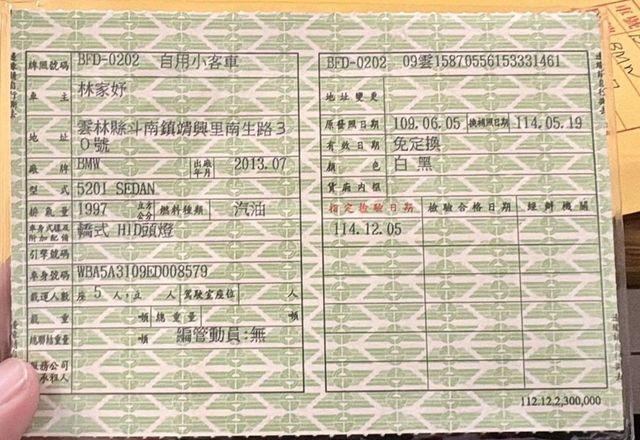 牌照號碼 BFD-0202 自用小客車
車主 林家妤
地址 雲林縣斗南鎮靖興里南生路30號
廠牌 BMW 出廠年月 2013.07
型式 520I SEDAN
排氣量 1997 立方公分 燃料種類 汽油
車身式樣及附加配備 轎式 HID頭燈
引擎號碼
車身號碼 WBA5A3109ED008579
載運人數 座 5 人,立 人 駕駛室座位 人
載重 噸 總重量 噸
總聯結重量 噸 編管動員:無
服務公司
承租人
BFD-0202 09雲15870556153331461
地址變更
原發照日期 109.06.05 換補照日期 114.05.19
有效日期 免定換
顏色 白 黑
貨廂內框
指定檢驗日期 檢驗合格日期 經辦機關
114.12.05
112.12.2,300,000